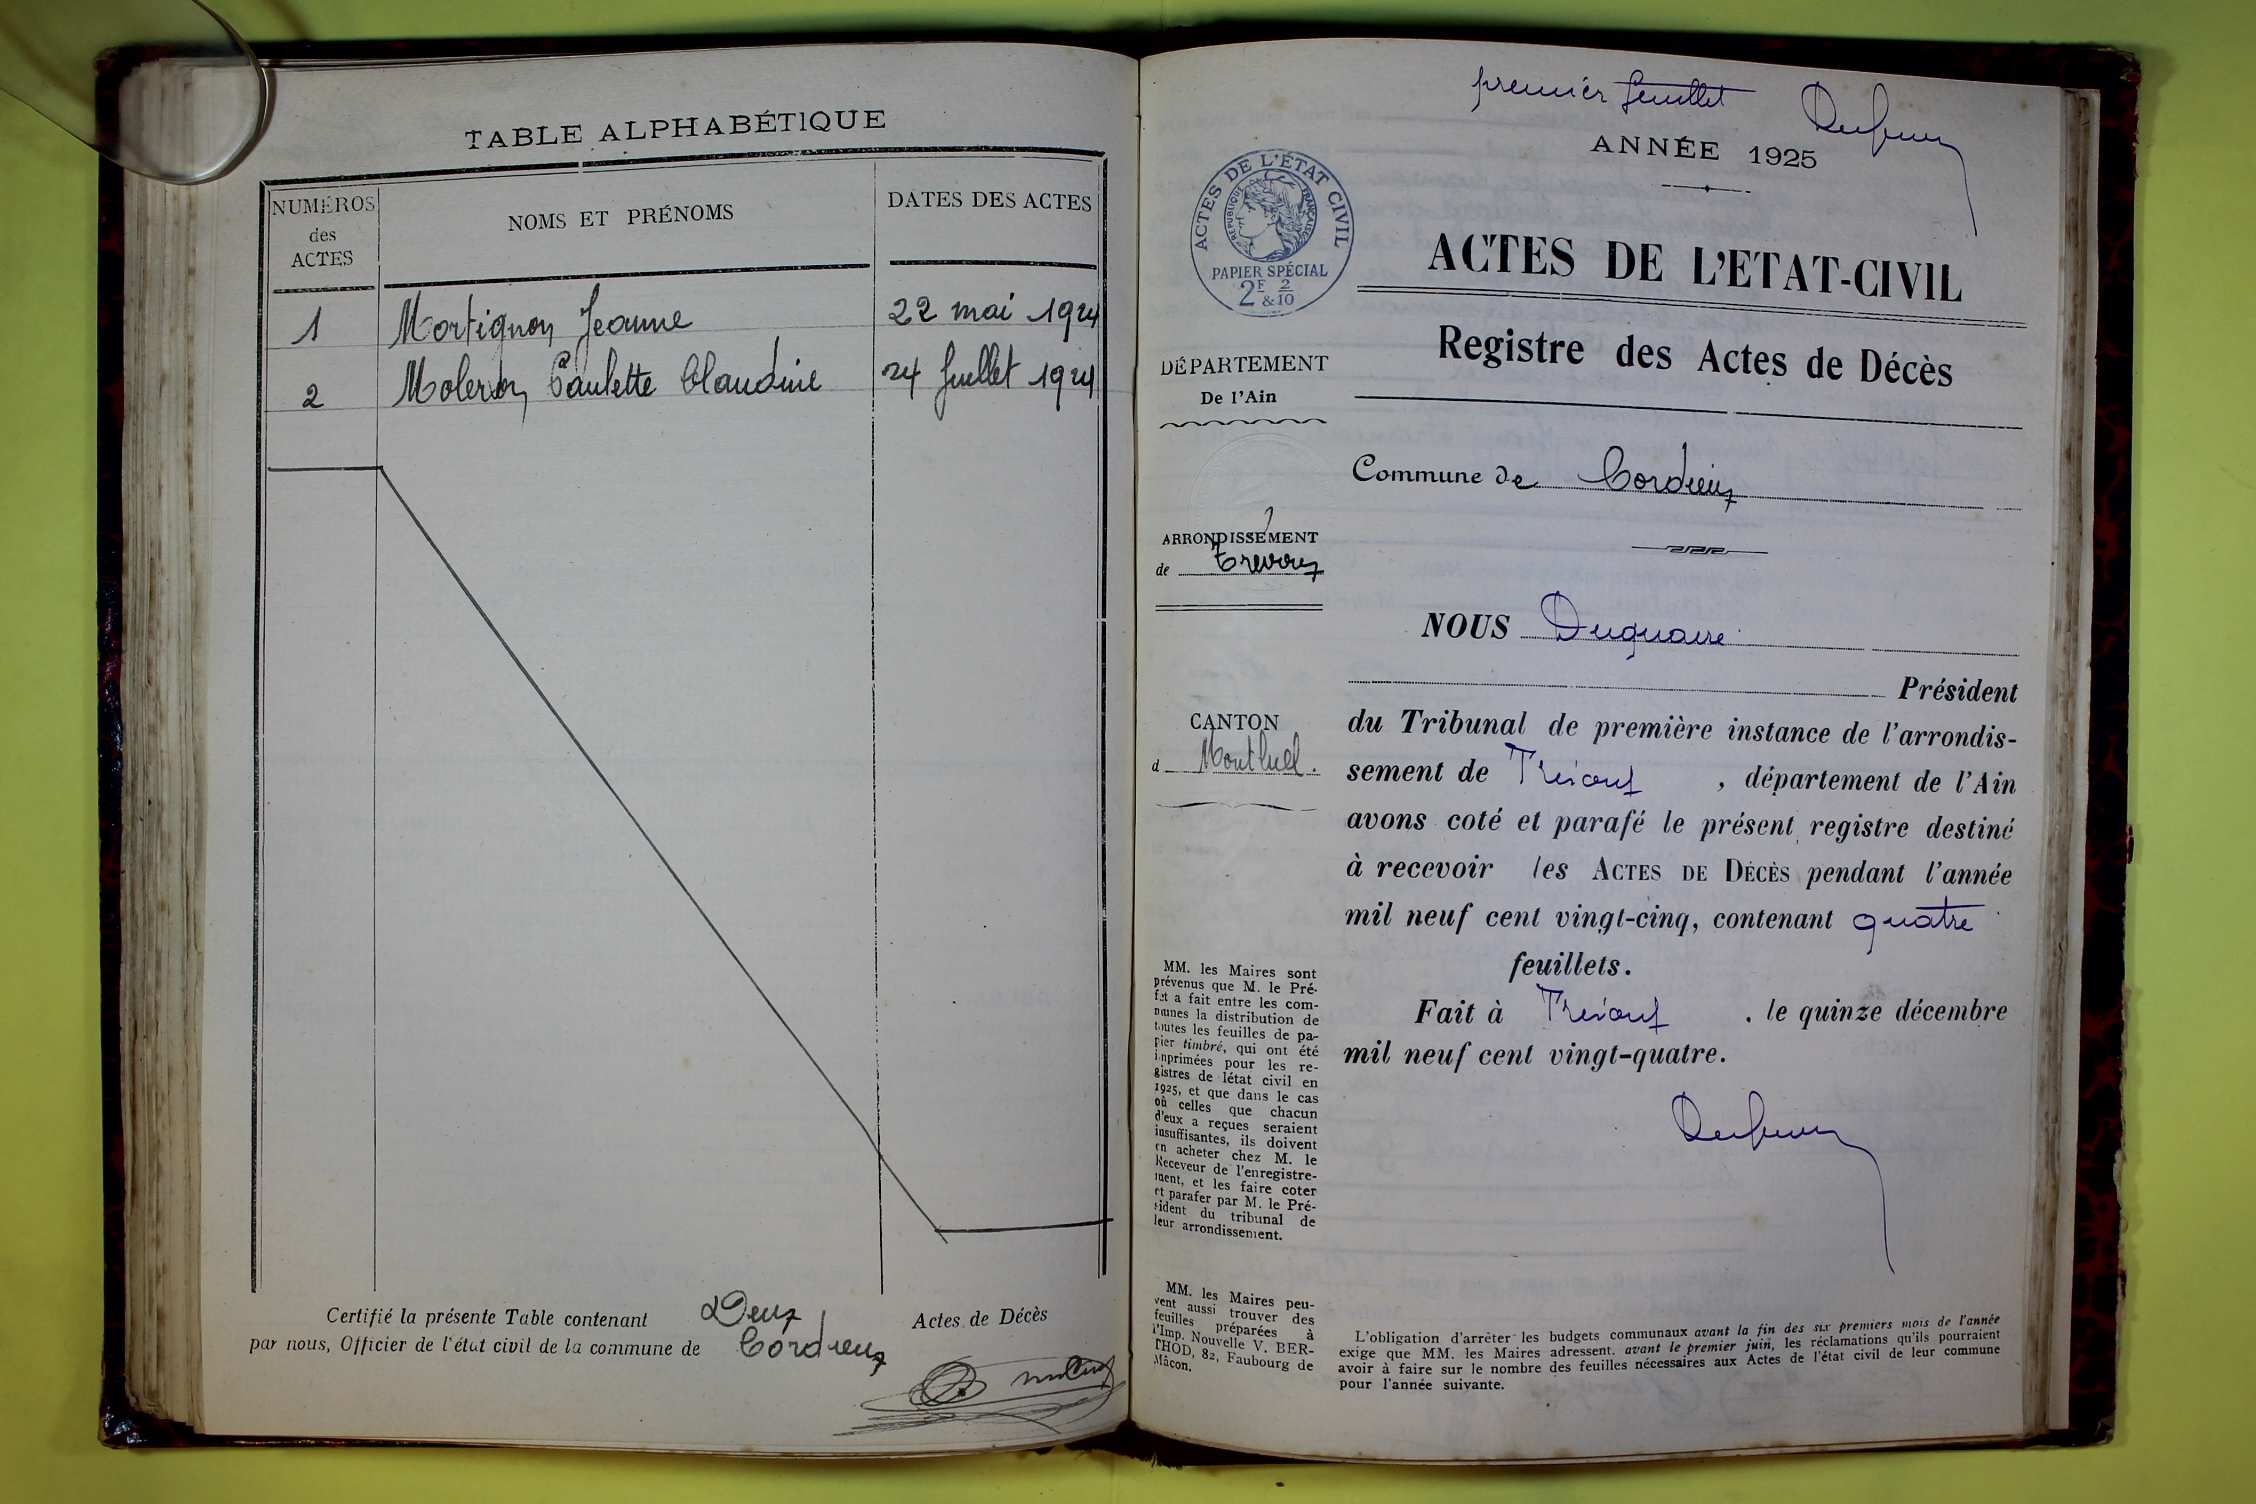 TABLE ALPHABÉTIQUE
NUMÉROS
des
ACTES
NOMS ET PRÉNOMS
DATES DES ACTES
1 Mortignon Jeanne 22 mai 1924
2 Moleron Paulette Claudine 24 Juillet 1924
Certifié la présente Table contenant Deux Actes de Décès
par nous, Officier de l'état civil de la commune de Cordieux
premier feuillet
ANNÉE 1925
ACTES DE L'ÉTAT CIVIL
RÉPUBLIQUE FRANÇAISE
PAPIER SPÉCIAL
2F & 2/10
ACTES DE L'ETAT-CIVIL
Registre des Actes de Décès
DÉPARTEMENT
De l'Ain
Commune de Cordieux
ARRONDISSEMENT
de Trévoux
NOUS Duquaire
Président
CANTON
d Montluel.
du Tribunal de première instance de l'arrondis-
sement de Trévoux, département de l'Ain
avons coté et parafé le présent registre destiné
à recevoir les ACTES DE DÉCÈS pendant l'année
mil neuf cent vingt-cinq, contenant quatre
feuillets.
Fait à Trévoux, le quinze décembre
mil neuf cent vingt-quatre.
MM. les Maires sont
prévenus que M. le Pré-
fet a fait entre les com-
munes la distribution de
toutes les feuilles de pa-
pier timbré, qui ont été
imprimées pour les re-
gistres de létat civil en
1925, et que dans le cas
où celles que chacun
d'eux a reçues seraient
insuffisantes, ils doivent
en acheter chez M. le
Receveur de l'enregistre-
ment, et les faire coter
et parafer par M. le Pré-
sident du tribunal de
leur arrondissement.
MM. les Maires peu-
vent aussi trouver des
feuilles préparées à
l'Imp. Nouvelle V. BER-
THOD, 82, Faubourg de
Mâcon.
L'obligation d'arrêter les budgets communaux avant la fin des six premiers mois de l'année
exige que MM. les Maires adressent, avant le premier juin, les réclamations qu'ils pourraient
avoir à faire sur le nombre des feuilles nécessaires aux Actes de l'état civil de leur commune
pour l'année suivante.